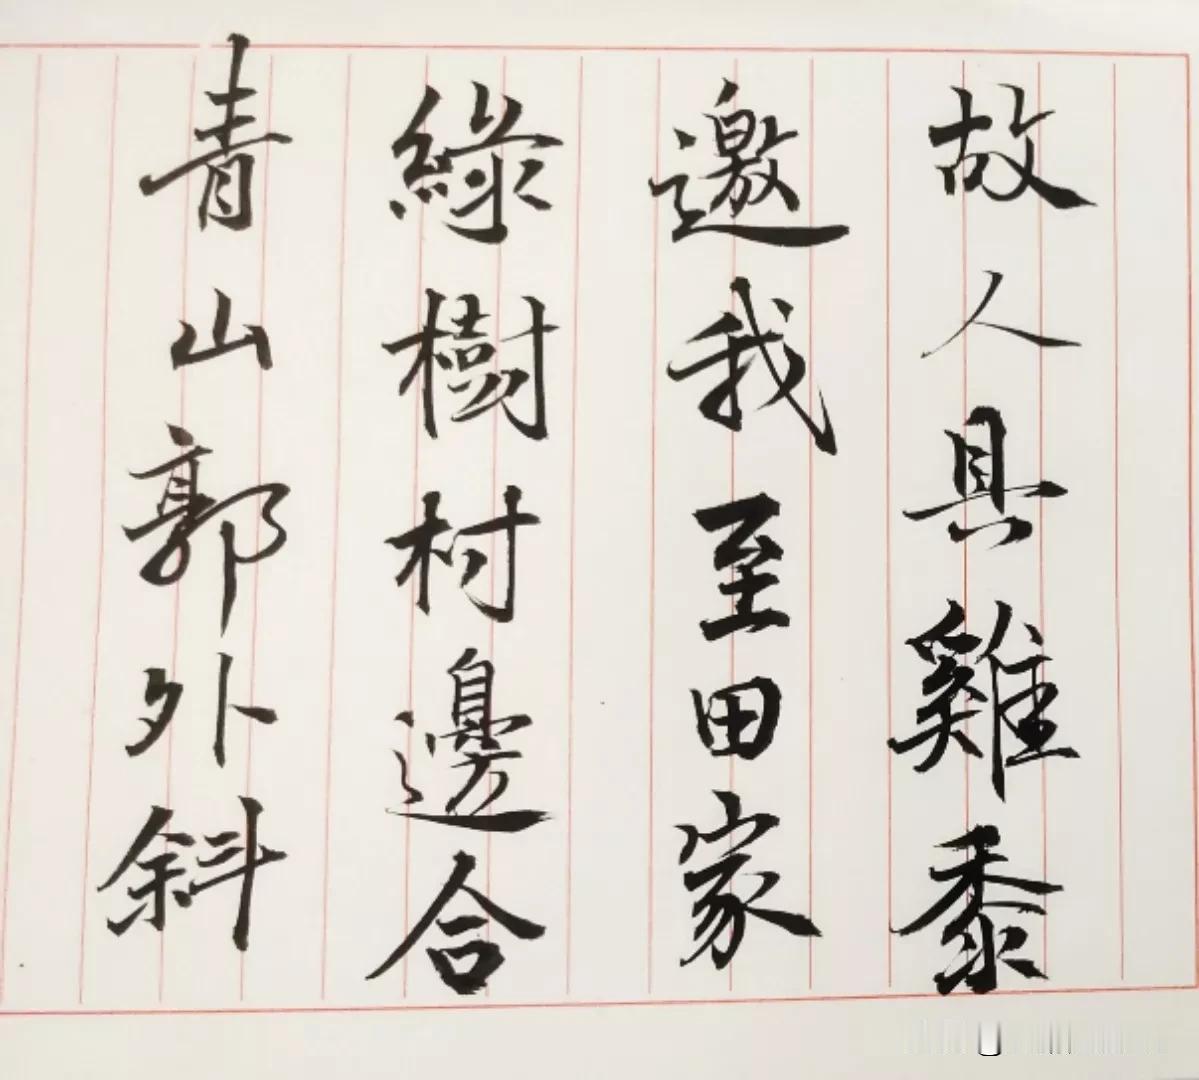 故人具雞黍
邀我至田家
綠樹村邊合
青山郭外斜